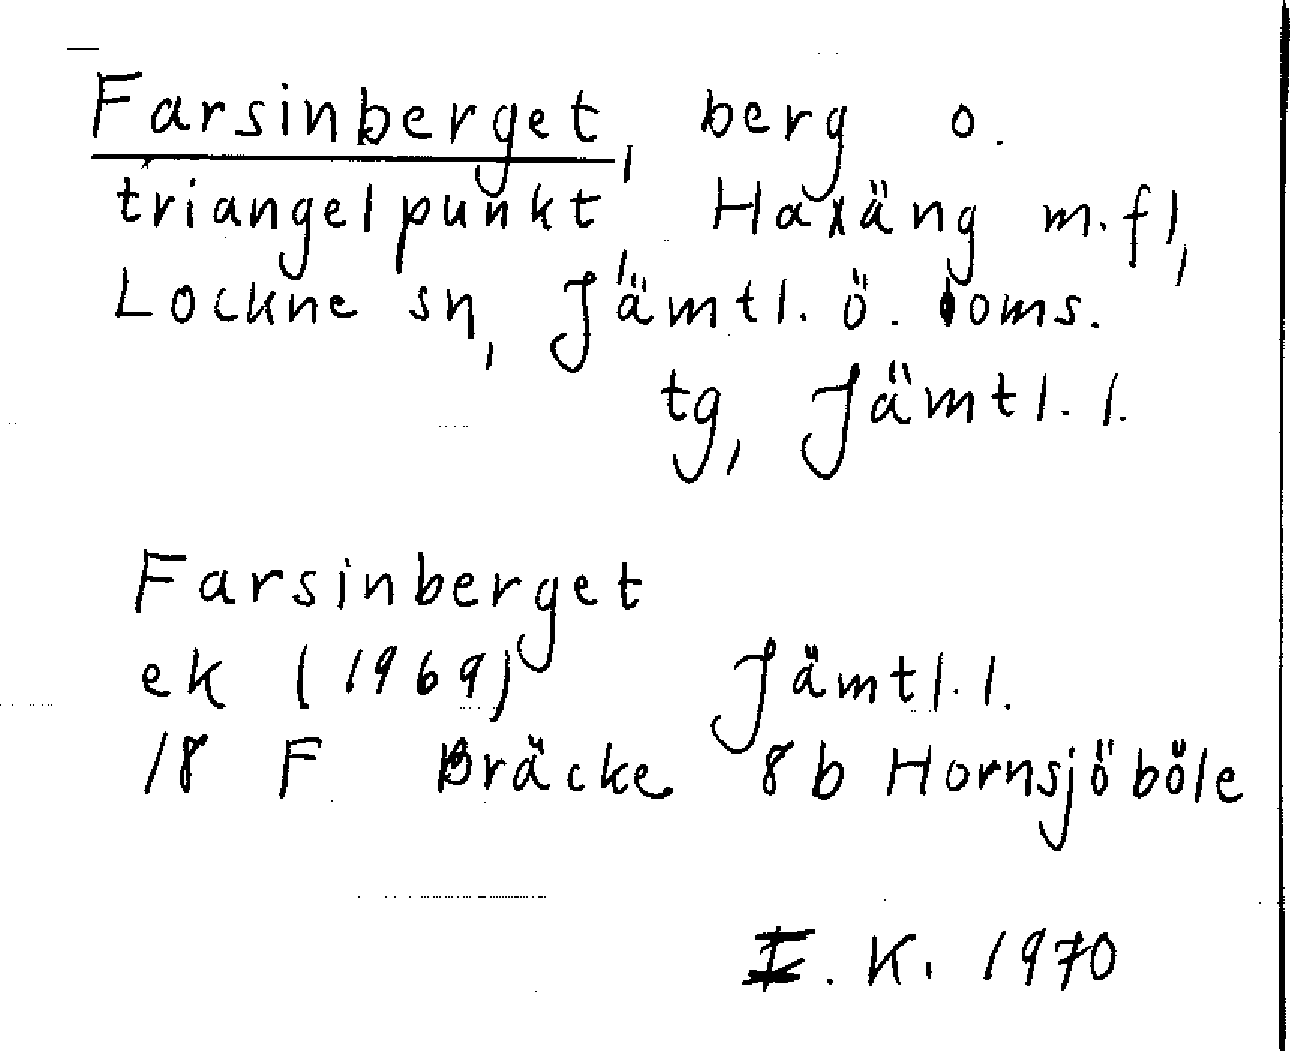 Farsinberget, berg o.
triangelpunkt Haxäng m.fl,
Lockne sn, Jämtl. ö. doms.
tg, Jämtl. l.
Farsinberget
ek (1969) Jämtl. l.
18 F Bräcke 8b Hornsjöböle
E. K. 1970